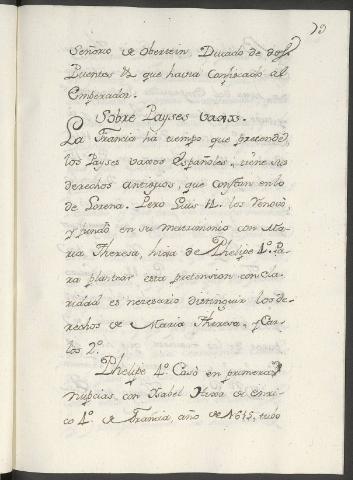 Señorio de Obertein. Ducado de dos
Puentes &a que havia Confiscado al
Emperador.
Sobre Payses vaxos.
La Francia ha tiempo que pretende
los Payses vaxos Españoles, tiene sus
derechos antiguos, que constan en lo
de Lorena. Pero Luis 14. los renovò,
y fundò en su matrimonio con Ma-
ria Theresa, hixa de Phelipe 4.º Pa-
ra plantear esta pretension con Cla-
ridad es necesario distinguir los de-
rechos de Maria Theresa, y Car-
los 2.º
Phelipe 4.º Casò en primeras
Nupcias con Isabel Hixa de Enri-
co 4.º de Francia, año de 1615, tubo